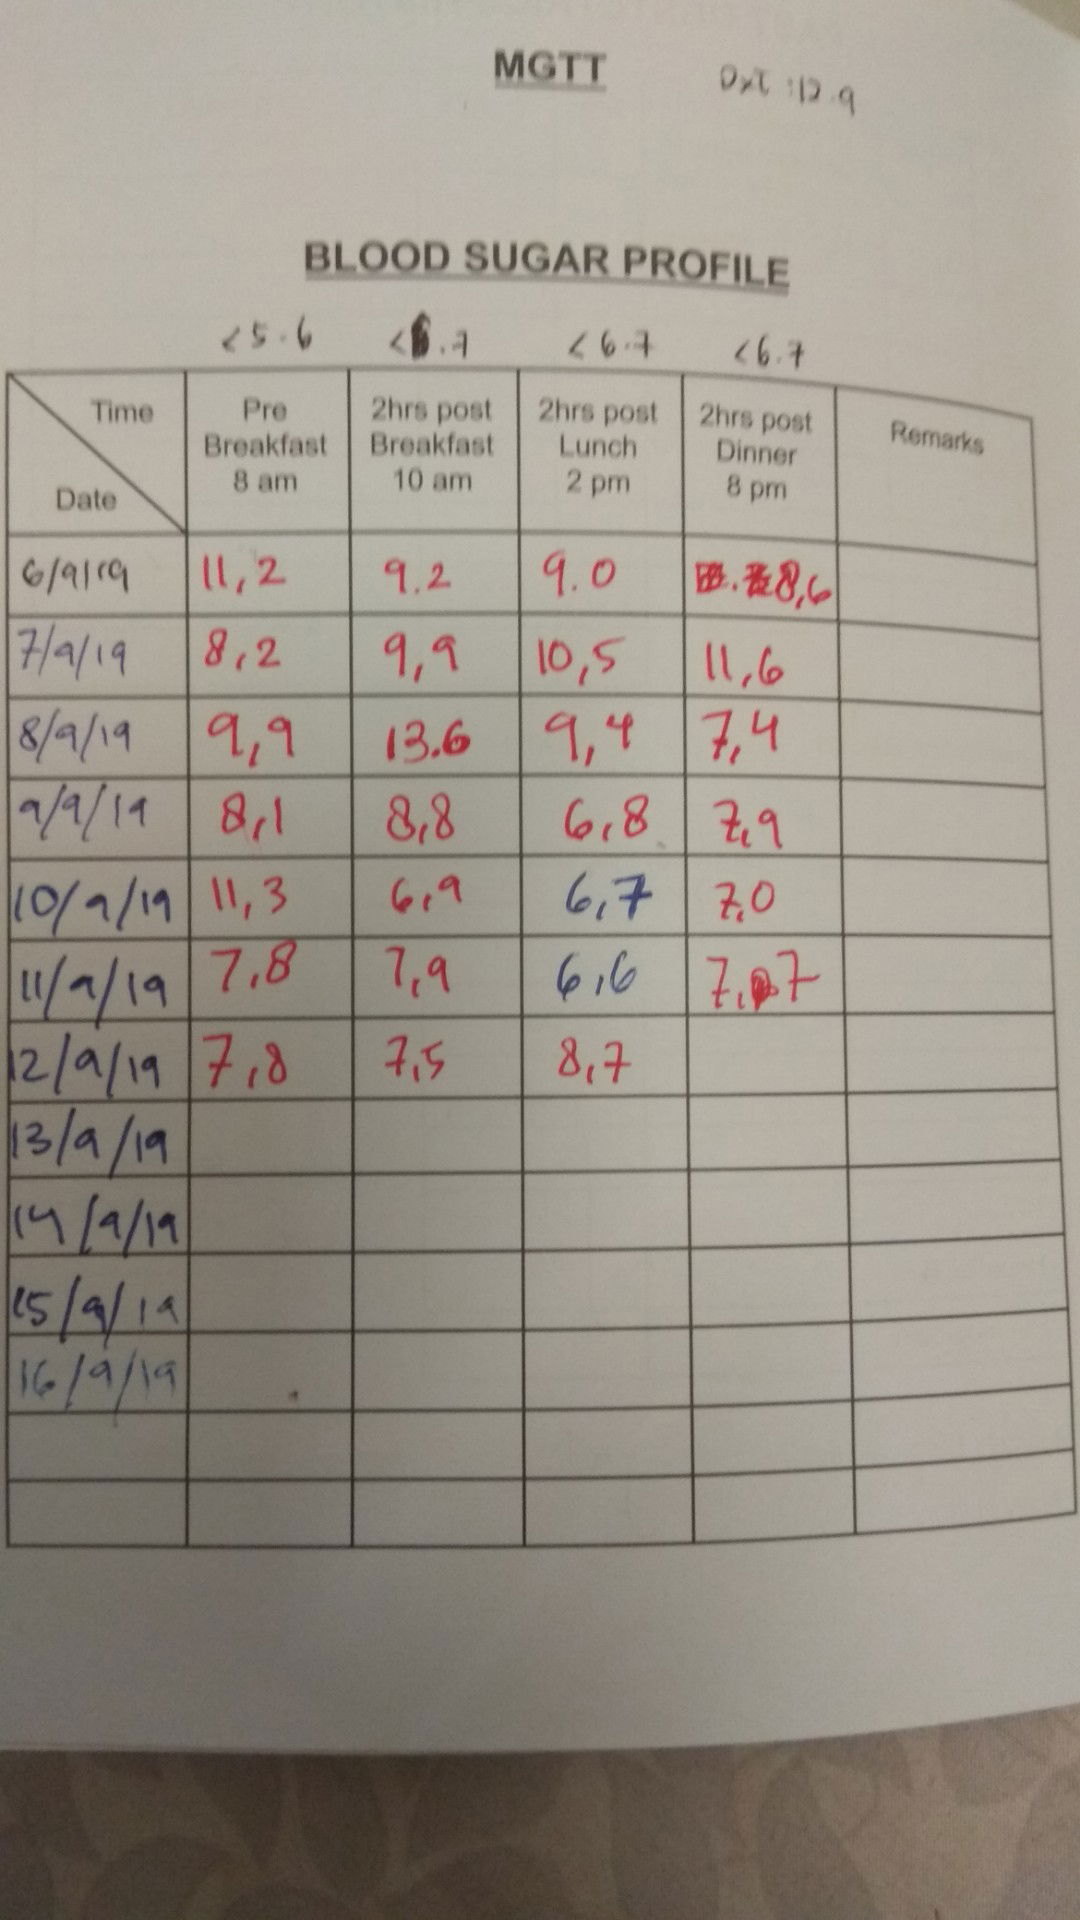 MGTT DXT : 12.9
BLOOD SUGAR PROFILE
<5.6 <6.7 <6.7 <6.7
Time Pre 2hrs post 2hrs post 2hrs post Remarks
Breakfast Breakfast Lunch Dinner
Date 8 am 10 am 2 pm 8 pm
6/9/19 11,2 9.2 9.0 8,6
7/9/19 8,2 9,9 10,5 11,6
8/9/19 9,9 13.6 9,4 7,4
9/9/19 8,1 8,8 6,8 7,9
10/9/19 11,3 6,9 6,7 7,0
11/9/19 7,8 7,9 6,6 7,7
12/9/19 7,8 7,5 8,7
13/9/19
14/9/19
15/9/19
16/9/19